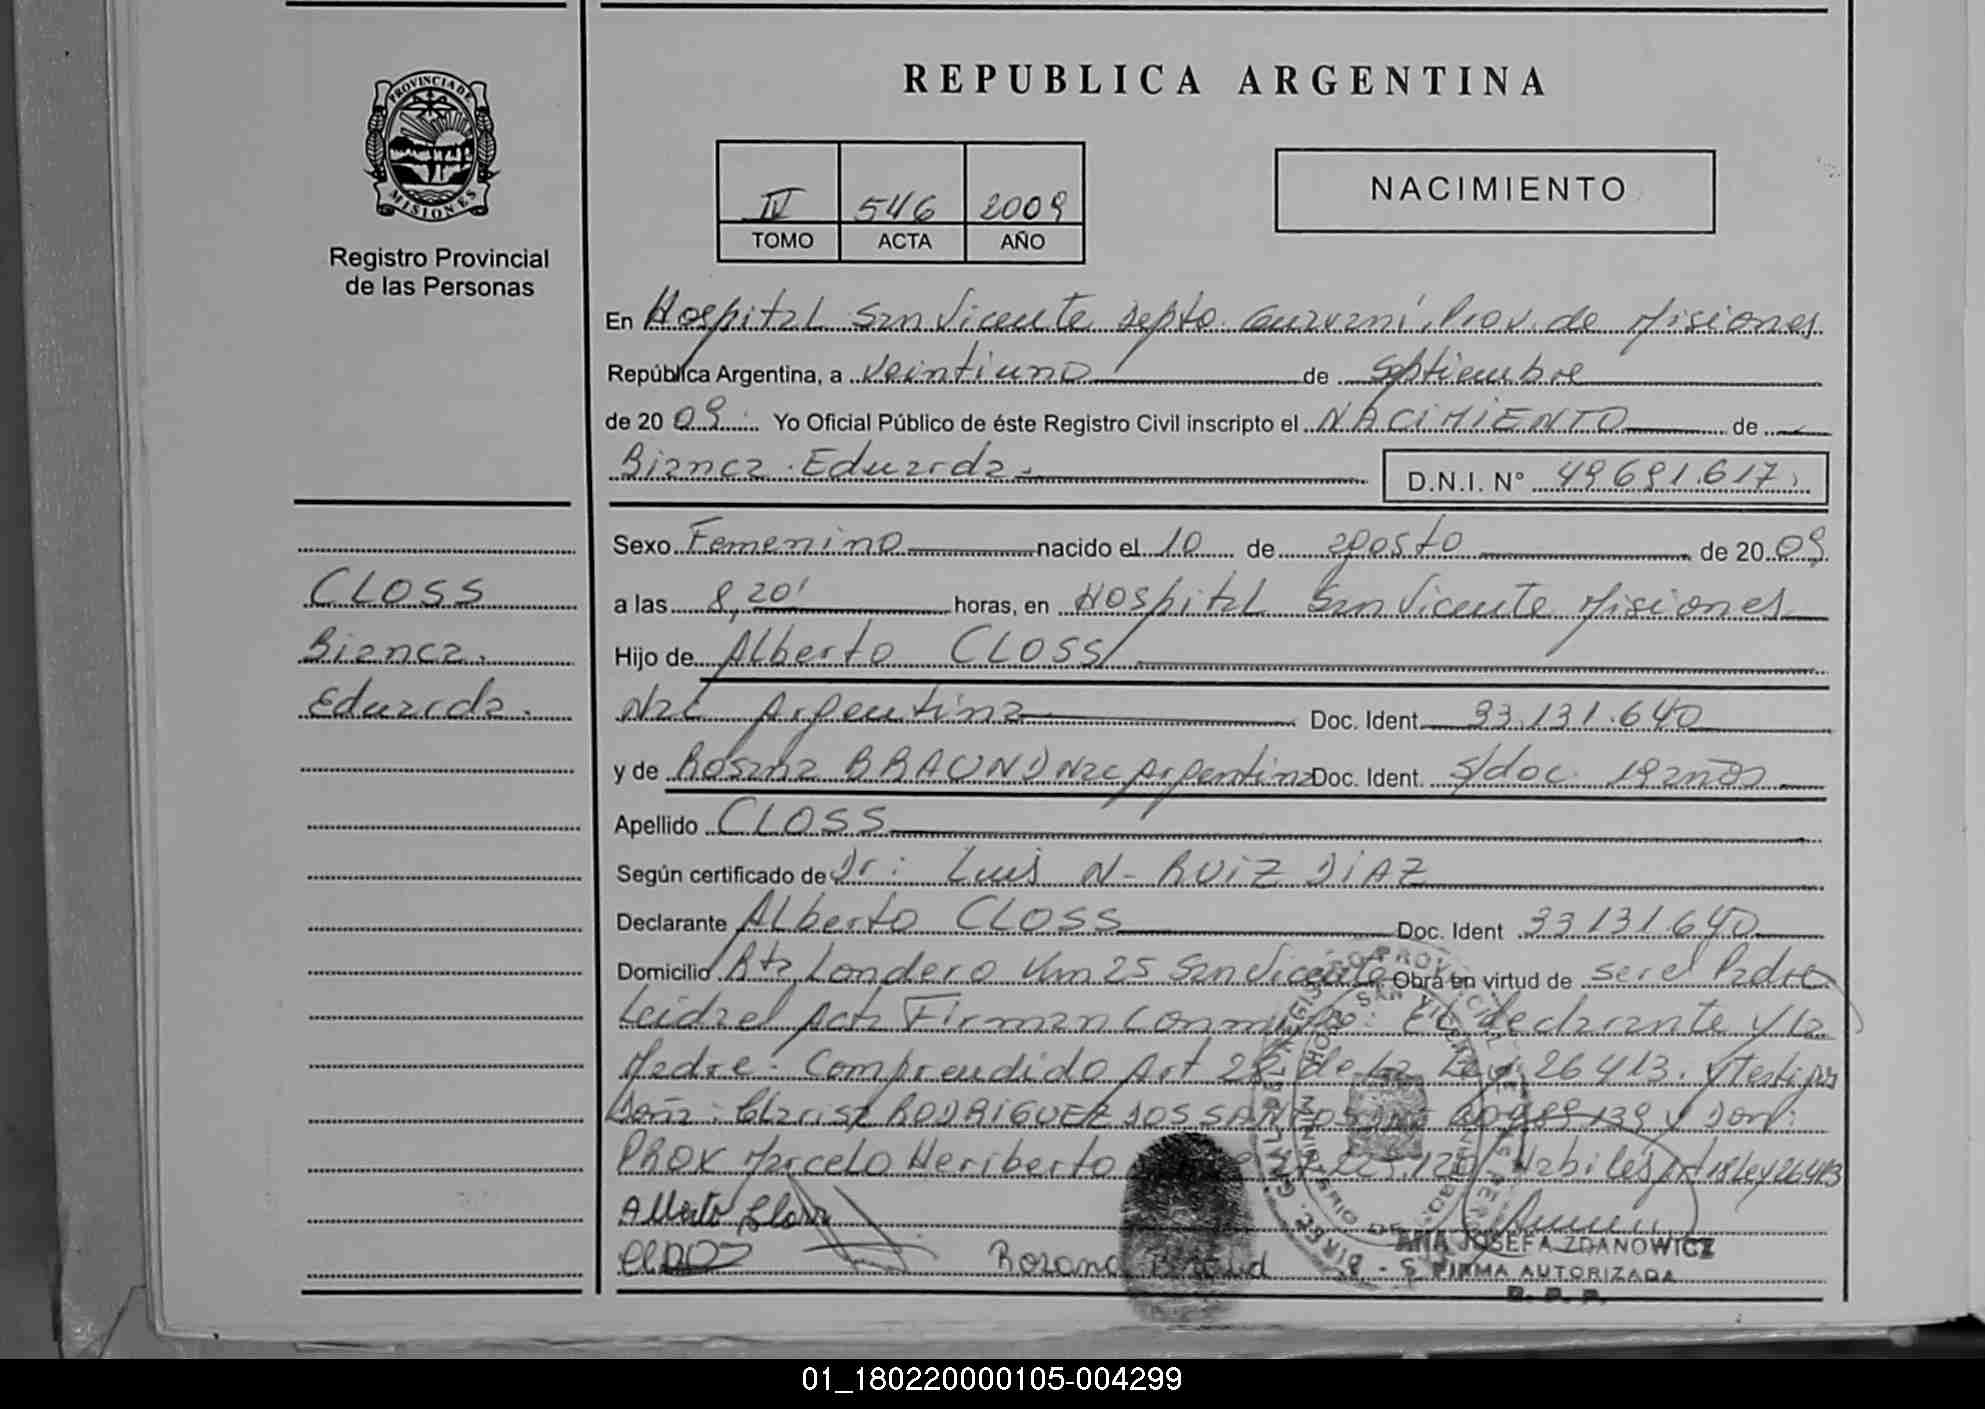 PROVINCIA DE
MISIONES
Registro Provincial
de las Personas
REPUBLICA ARGENTINA
IV 546 2009
TOMO ACTA AÑO
NACIMIENTO
En Hospital San Vicente Depto. Guaraní, Prov. de Misiones
República Argentina, a veintiuno de septiembre
de 2009. Yo Oficial Público de éste Registro Civil inscripto el NACIMIENTO de
Bianca Eduarda. D.N.I. N° 49.691.617.
Sexo Femenino nacido el 10 de agosto de 2009
a las 8,20' horas, en Hospital San Vicente Misiones
Hijo de Alberto CLOSS
Nac Argentina Doc. Ident. 33.131.640
y de Rosana BRAUND Nac Argentina Doc. Ident. s/doc. 19 años
Apellido CLOSS
Según certificado de Dr: Luis N- RUIZ DIAZ
Declarante Alberto CLOSS Doc. Ident 33131.640
Domicilio Rta Londero Km 25 San Vicente Obra en virtud de ser el Padre
Leida el Acta Firman conmigo: El declarante y la
Madre. Comprendido Art 28 de la Ley 26413. y Testigos
Doña: Clarisa RODRIGUEZ DOS SANTOS y Don:
PROK Marcelo Heriberto Habiles Art 18 Ley 26413
Alberto Closs
Rosana
ANA JOSEFA ZDANOWICZ
FIRMA AUTORIZADA
R. P. P.
CLOSS
Bianca.
Eduarda.
01_180220000105-004299